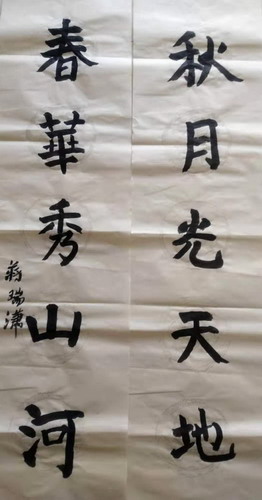 秋月光天地
春華秀山河
蒋瑞潇